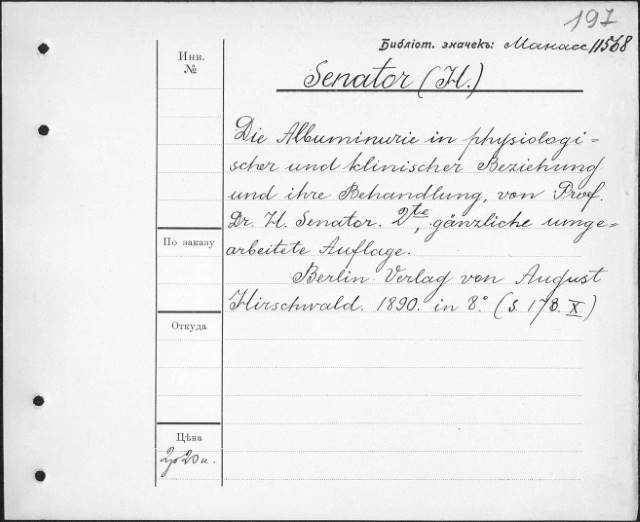 197
Библіот. значекъ: Манасс 11568
Инв.
№
Senator (H.)
Die Albuminurie in physiologi-
scher und klinischer Beziehung
und ihre Behandlung, von Prof.
Dr. H. Senator. 2te, gänzliche umge-
arbeitete Auflage.
Berlin. Verlag von August
Hirschwald. 1890. in 8° (S. 178. X)
По заказу
Откуда
Цѣна
2р 20к.